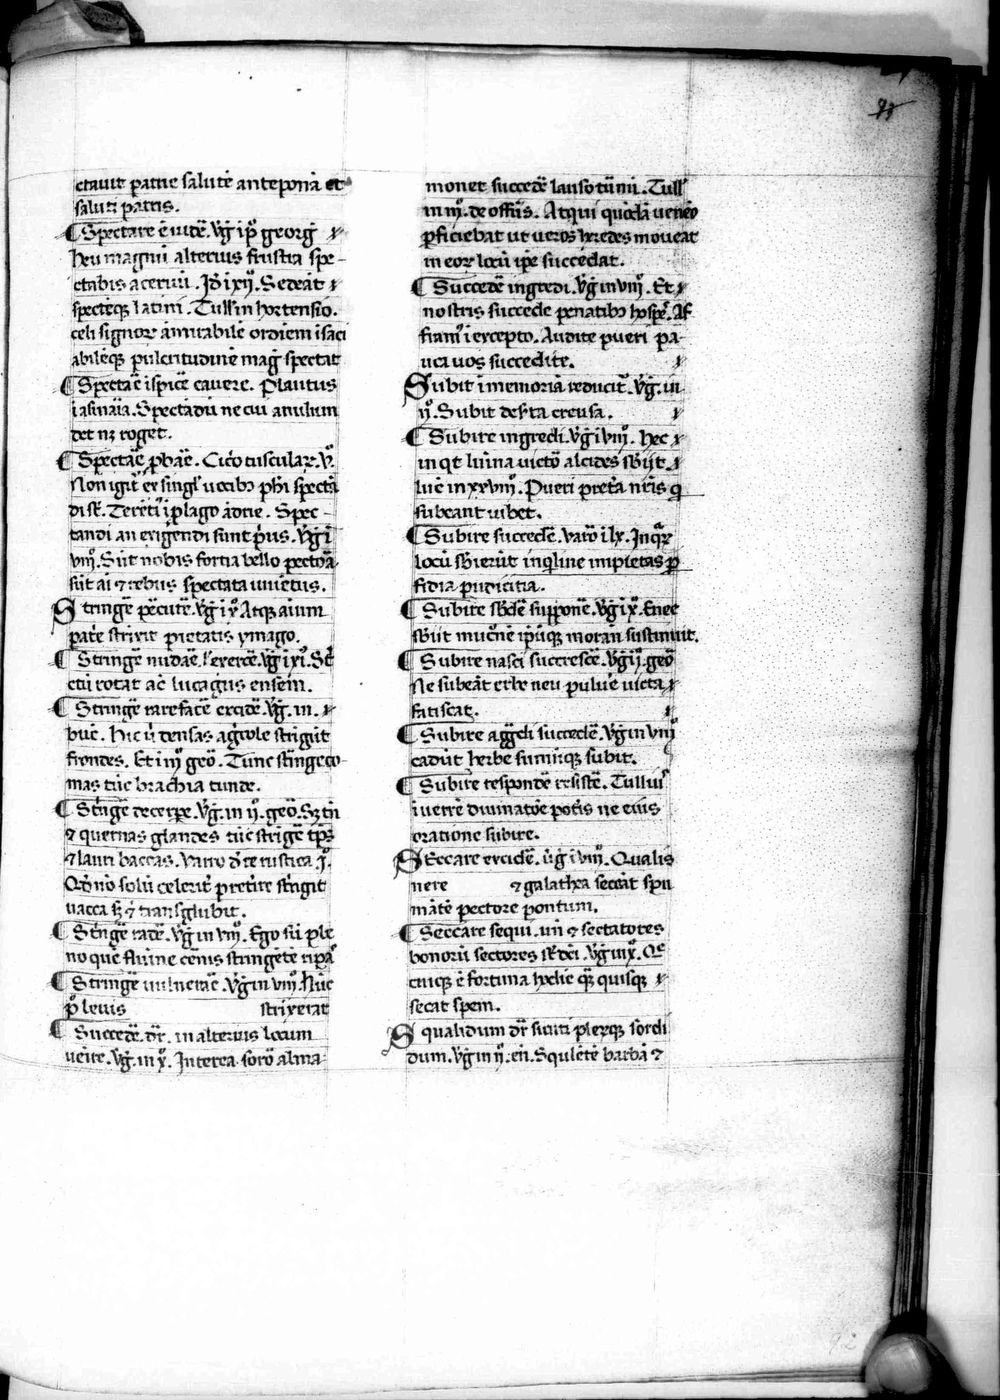 ctauit patrie salutē anteponā et
saluti patris.
¶ Spectare ē uidē. Vg̓ ip̊ georg̓
heu magnū alterius frustra spe-
ctabis aceruū. Id̓ i xij̊. Sedeāt
specteq̨ latini. Tull̓ in hortensio.
celi signoꝝ āmirabilē ordinem isaci
abileq̨ pulcritudinē mag̓ spectat
¶ Spectar̄e ispicē cauere. Plautus
i asinaria. Spectādū ne cui anulum
det nꝫ roget.
¶ Spectar̄e p̱bar̄e. Cic̓o tusculaꝝ. v̊.
Non igit̓ ex singl̓ uocibꝫ ph̓i spectā
di st̄. Terēti̓ i p̱lago ādrie. Spec-
tandi an exigendi sunt p̓us. Vg̓ i
viij̊. Sūt nobis fortia bello pectora
sūt ai̓ ⁊ rebus spectata iuuētus.
Stringē p̱cutē. Vg̓ i x̊ Atqꝫ aīum
patr̓e strixit pietatis ymago.
¶ Stringē nudar̄e l̓ exercē. Vg̓ i xi̊. St̄
ctū rotat ac̓ lucagus ensem.
¶ Stringē rarefacē excidē. Vg̓. in.
buc̄. hic ū densas ag̓cole st̓igūt
frondes. Et i iij̊ geō. Tunc st̓inge co-
mas tūc brachia tunde.
¶ St̓ngē decerpe. Vg̓. in ij̊. geō. Sꝫ tn̄
⁊ quernas glandes tūc st̓igē tp̄s
⁊ lauri baccas. Varro d̓ re rustica j̊.
Qd̓ nō solū celerit̓ p̱terire st̓ngit
uacca sꝫ ⁊ transglubit.
¶ St̓ngē radē. Vg̓ in viij̊. Ego sū ple
no quē flumine c̓nis st̓ingētē ripā
¶ Stringē uulnerar̄e. Vg̓ in viij̊. Nūc
p̱ leuis strixerat
¶ Succedē. dr̄. in alterius locum
uenire. Vg̓. in x̊. Interea. soror̄ alma
monet succedē lauso tūni. Tull̓
in iij̊. de offitīs. Atqui quidā uenēo
p̱ficiebat ut ueros heredes moueāt
in eoꝝ locū ip̄e succedat.
¶ Succedē ingredi. Vg̓ in viij̊. Et
nostris succede penatibꝫ hospes̄. Af
fram̓ i excepto. Audite pueri pa-
uca uos succedite.
Subit i memoriā reducit̓. Vg̓. in
ij̊. Subit des̓ta creusa.
¶ Subire ingredi. Vg̓ i viij̊. hec
inqt limina uictor̄ alcides sb̓ijt
luc̄ in xxviij̊. Pueri p̱terā nr̄is q̱
subeant uidet.
¶ Subire succedē. Varrō i lx. In q̱ꝝ
locū sb̓ierūt inq̱line impietas p̱
fidia pudicitia.
¶ Subire sb̓dē supponē. Vg̓ i x̊. Enee
sb̓iit mucr̓nē ip̄uq̨ moran̄ sustinuit.
¶ Subire nasci succrescē. Vg̓ ij̊ geō
Ne subeāt erbe neu puluē uicta
fatiscat.
¶ Subire aggredi succedē. Vg̓ in viij̊
cadūt herbe fumūq̨ subit.
¶ Subire respondē resistē. Tullius̓
i uerrē diuinatōe potis ne eius
oratione subire.
Seccare excidē. Vg̓ i viij̊. Qualis
nere ⁊ galathea seccāt spu
mātē pectore pontum.
¶ Seccare sequi. un̄ ⁊ sectatores
bonorū sectores st̄ d̓ci. Vg̓ in x̊. Qe
cuiq̨ ē fortuna hodie q̱ꝫ quisq̨
secat spem.
Squalidum dr̄ sicuti pleꝝq̨ sordi
dum. Vg̓ in ij̊. en̄. Squalētē barbā ⁊